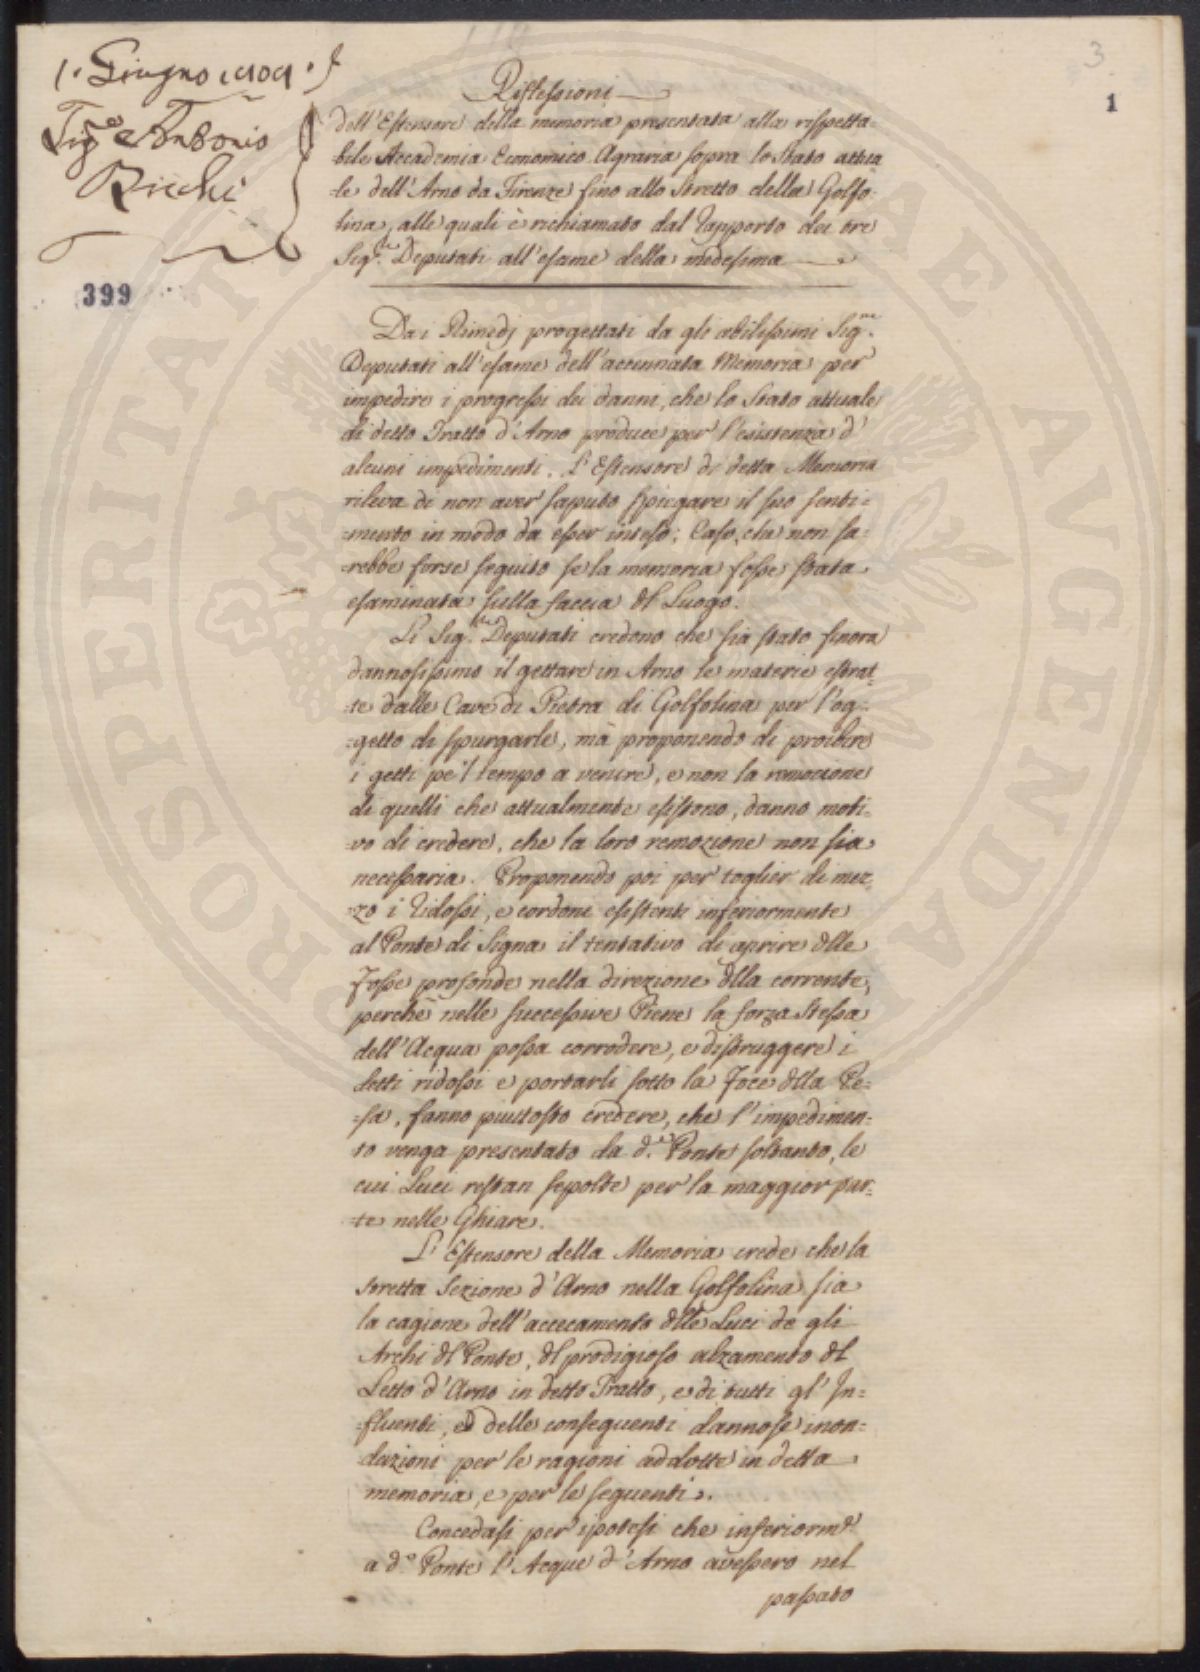 3
1
1. Giugno
Sig.re Antonio
Ricchi
399
Riflessioni
dell'Estensore della memoria presentata alla rispetta-
bile Accademia Economico Agraria sopra lo Stato attua
-le dell'Arno da Firenze fino allo Stretto della Golfo-
lina, alle quali è richiamato dal Rapporto dei tre
Sig.ri Deputati all'esame della medesima
Dai Rimedj progettati da gli abilissimi Sig.ri
Deputati all'esame dell'accennata Memoria per
impedire i progressi dei danni, che lo Stato attuale
di detto Tratto d'Arno produce per l'esistenza d'
alcuni impedimenti. L'Estensore di detta Memoria
rileva di non aver saputo spiegare il suo senti=
=mento in modo da esser inteso; Caso, che non sa=
=rebbe forse seguito se la memoria fosse stata
esaminata sulla faccia del Luogo.
Li Sig.ri Deputati credono che sia stato finora
dannosissimo il gettare in Arno le materie estrat-
-te dalle Cave di Pietra di Golfolina per l'og-
=getto di spurgarle, mà proponendo di proibire
i getti pe'l tempo a venire, e non la remozione
di quelli che attualmente esistono, danno moti-
-vo di credere, che la loro remozione non sia
necessaria. Proponendo poi per toglier di mez-
-zo i Ridossi, e cordoni esistenti inferiormente
al Ponte di Signa il tentativo di aprire delle
Fosse profonde nella direzione della corrente,
perchè nelle successive Piene la forza Stessa
dell'Acqua possa corrodere, e distruggere i
detti ridossi e portarli sotto la Foce della Pe=
=sa, fanno piuttosto credere, che l'impedimen-
to venga presentato da d.o Ponte soltanto, le
cui Luci restan sepolte per la maggior par-
-te nelle Ghiare.
L'Estensore della Memoria crede che la
stretta Sezione d'Arno nella Golfolina sia
la cagione dell'accecamento delle Luci de gli
Archi del Ponte, del prodigioso alzamento del
Letto d'Arno in detto Tratto, e di tutti gl'In=
-fluenti, ed delle conseguenti dannose inon-
dazioni per le ragioni addotte in detta
memoria, e per le seguenti.
Concedasi per ipotesi che inferiorm.e
a d.o Ponte l'Acque d'Arno avessero nel
passato